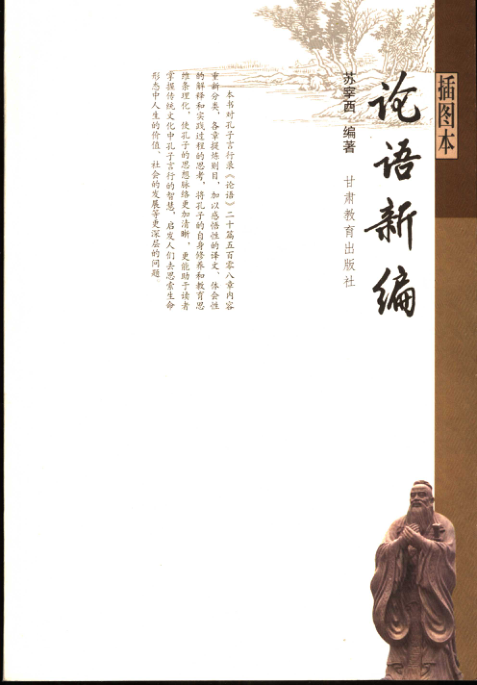 插图本
论语新编
苏宰西 编著
甘肃教育出版社
本书对孔子言行录《论语》二十篇五百零八章内容
重新分类，各章提炼则目，加以感悟性的译文，体会性
的解释和实践过程的思考，将孔子的自身修养和教育思
维条理化，使孔子的思想脉络更加清晰，更能助于读者
掌握传统文化中孔子言行的智慧，启发人们去思索生命
形态中人生的价值、社会的发展等更深层的问题。